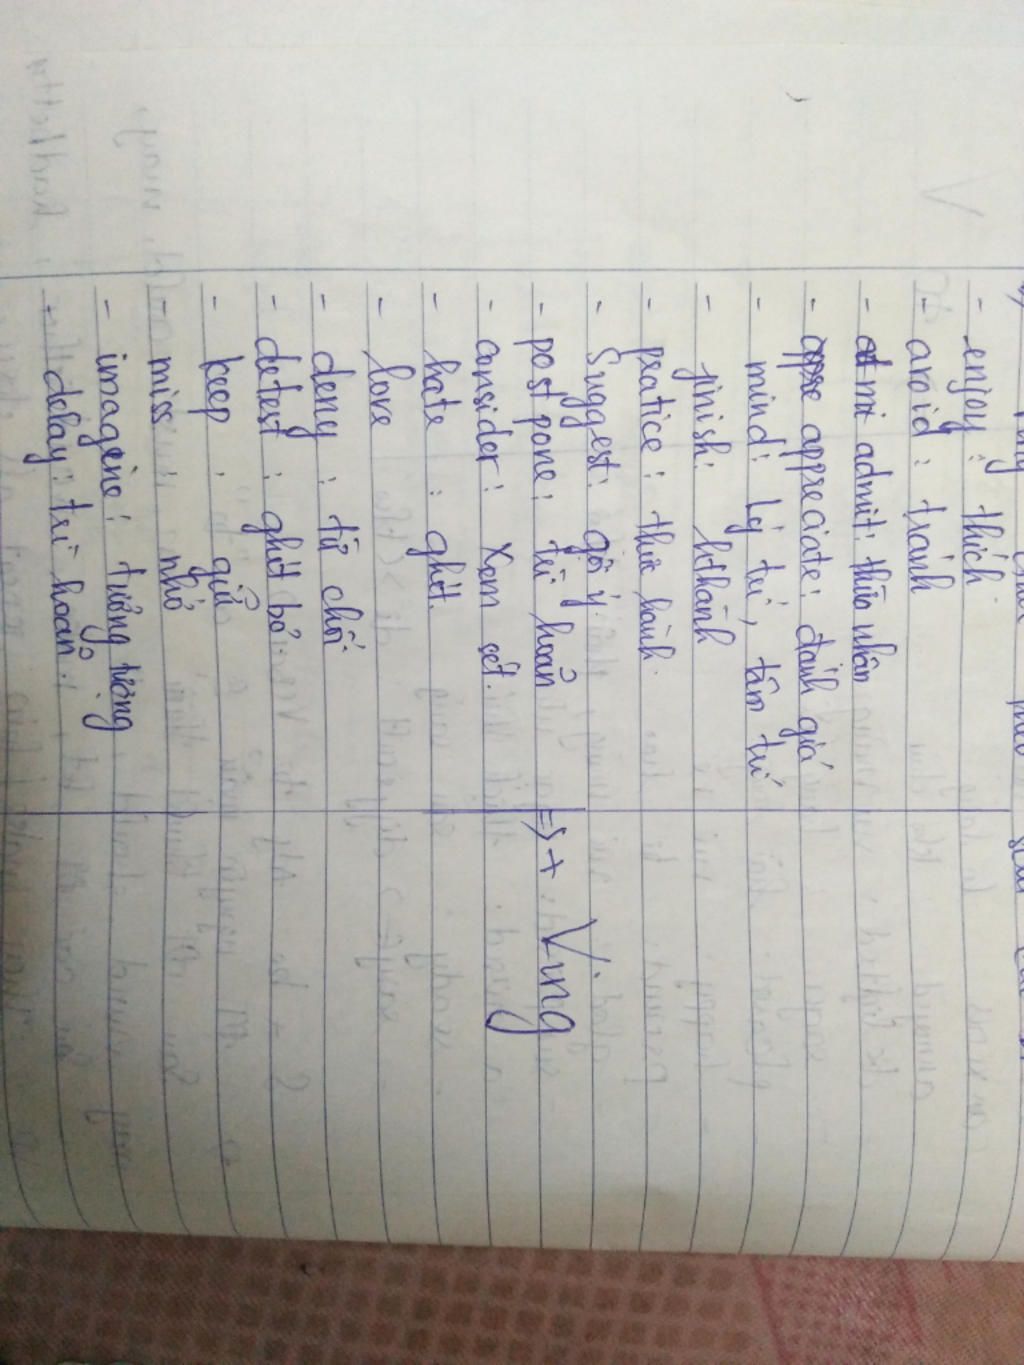 - enjoy: thích
- avoid: tránh
- admit: thừa nhận
- appreciate: đánh giá
- mind: lý trí, tâm trí
- finish: hthành
- pratice: thức hành.
- Suggest: gợi ý
- post pone: trì hoãn => + Ving
- consider: xem sét.
- hate: ghét.
- love
- deny: từ chối
- detest: ghét bỏ
- keep: giữ
- miss: nhớ
- imagine: tưởng tượng
- delay: trì hoãn.